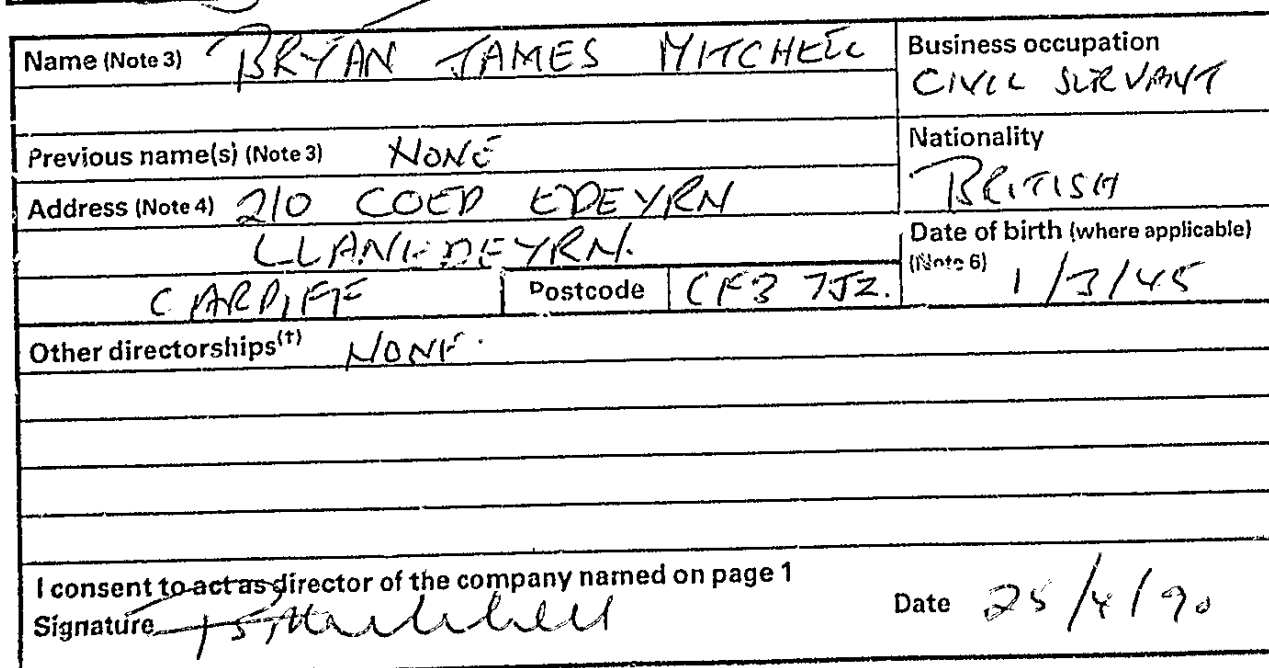 Name (Note 3) BRYAN JAMES MITCHELL
Business occupation
CIVIL SERVANT
Previous name(s) (Note 3) NONE
Nationality
BRITISH
Address (Note 4) 210 COED EDEYRN
LLANEDEYRN.
CARDIFF
Postcode CF3 7JZ.
Date of birth (where applicable)
(Note 6) 1/3/45
Other directorships(†) NONE.
I consent to act as director of the company named on page 1
Signature BJMitchell
Date 25/4/90